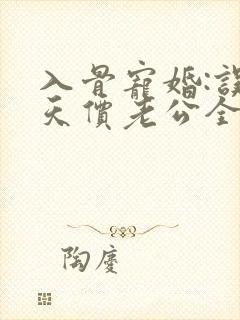 入骨寵婚:誤
天價老公全
陶慶